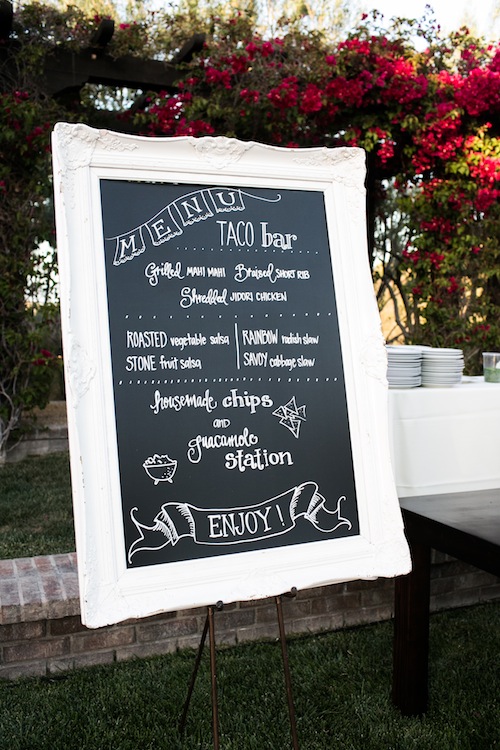 MENU
TACO bar
Grilled MAHI MAHI Braised SHORT RIB
Shredded JIDORI CHICKEN
ROASTED vegetable salsa
STONE fruit salsa
RAINBOW radish slaw
SAVOY cabbage slaw
housemade chips
AND
guacamole
station
ENJOY!